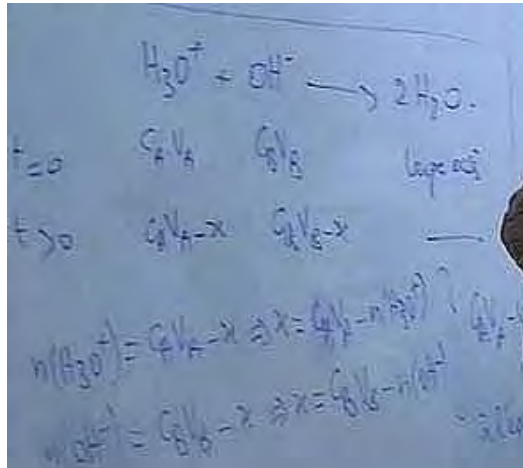 H₃O⁺ + OH⁻ → 2H₂O.
t=0 C_A V_A C_B V_B
t>0 C_A V_A-x C_B V_B-x —
n(H₃O⁺) = C_A V_A - x ⇒ x = C_A V_A - n(H₃O⁺)
n(OH⁻) = C_B V_B - x ⇒ x = C_B V_B - n(OH⁻)